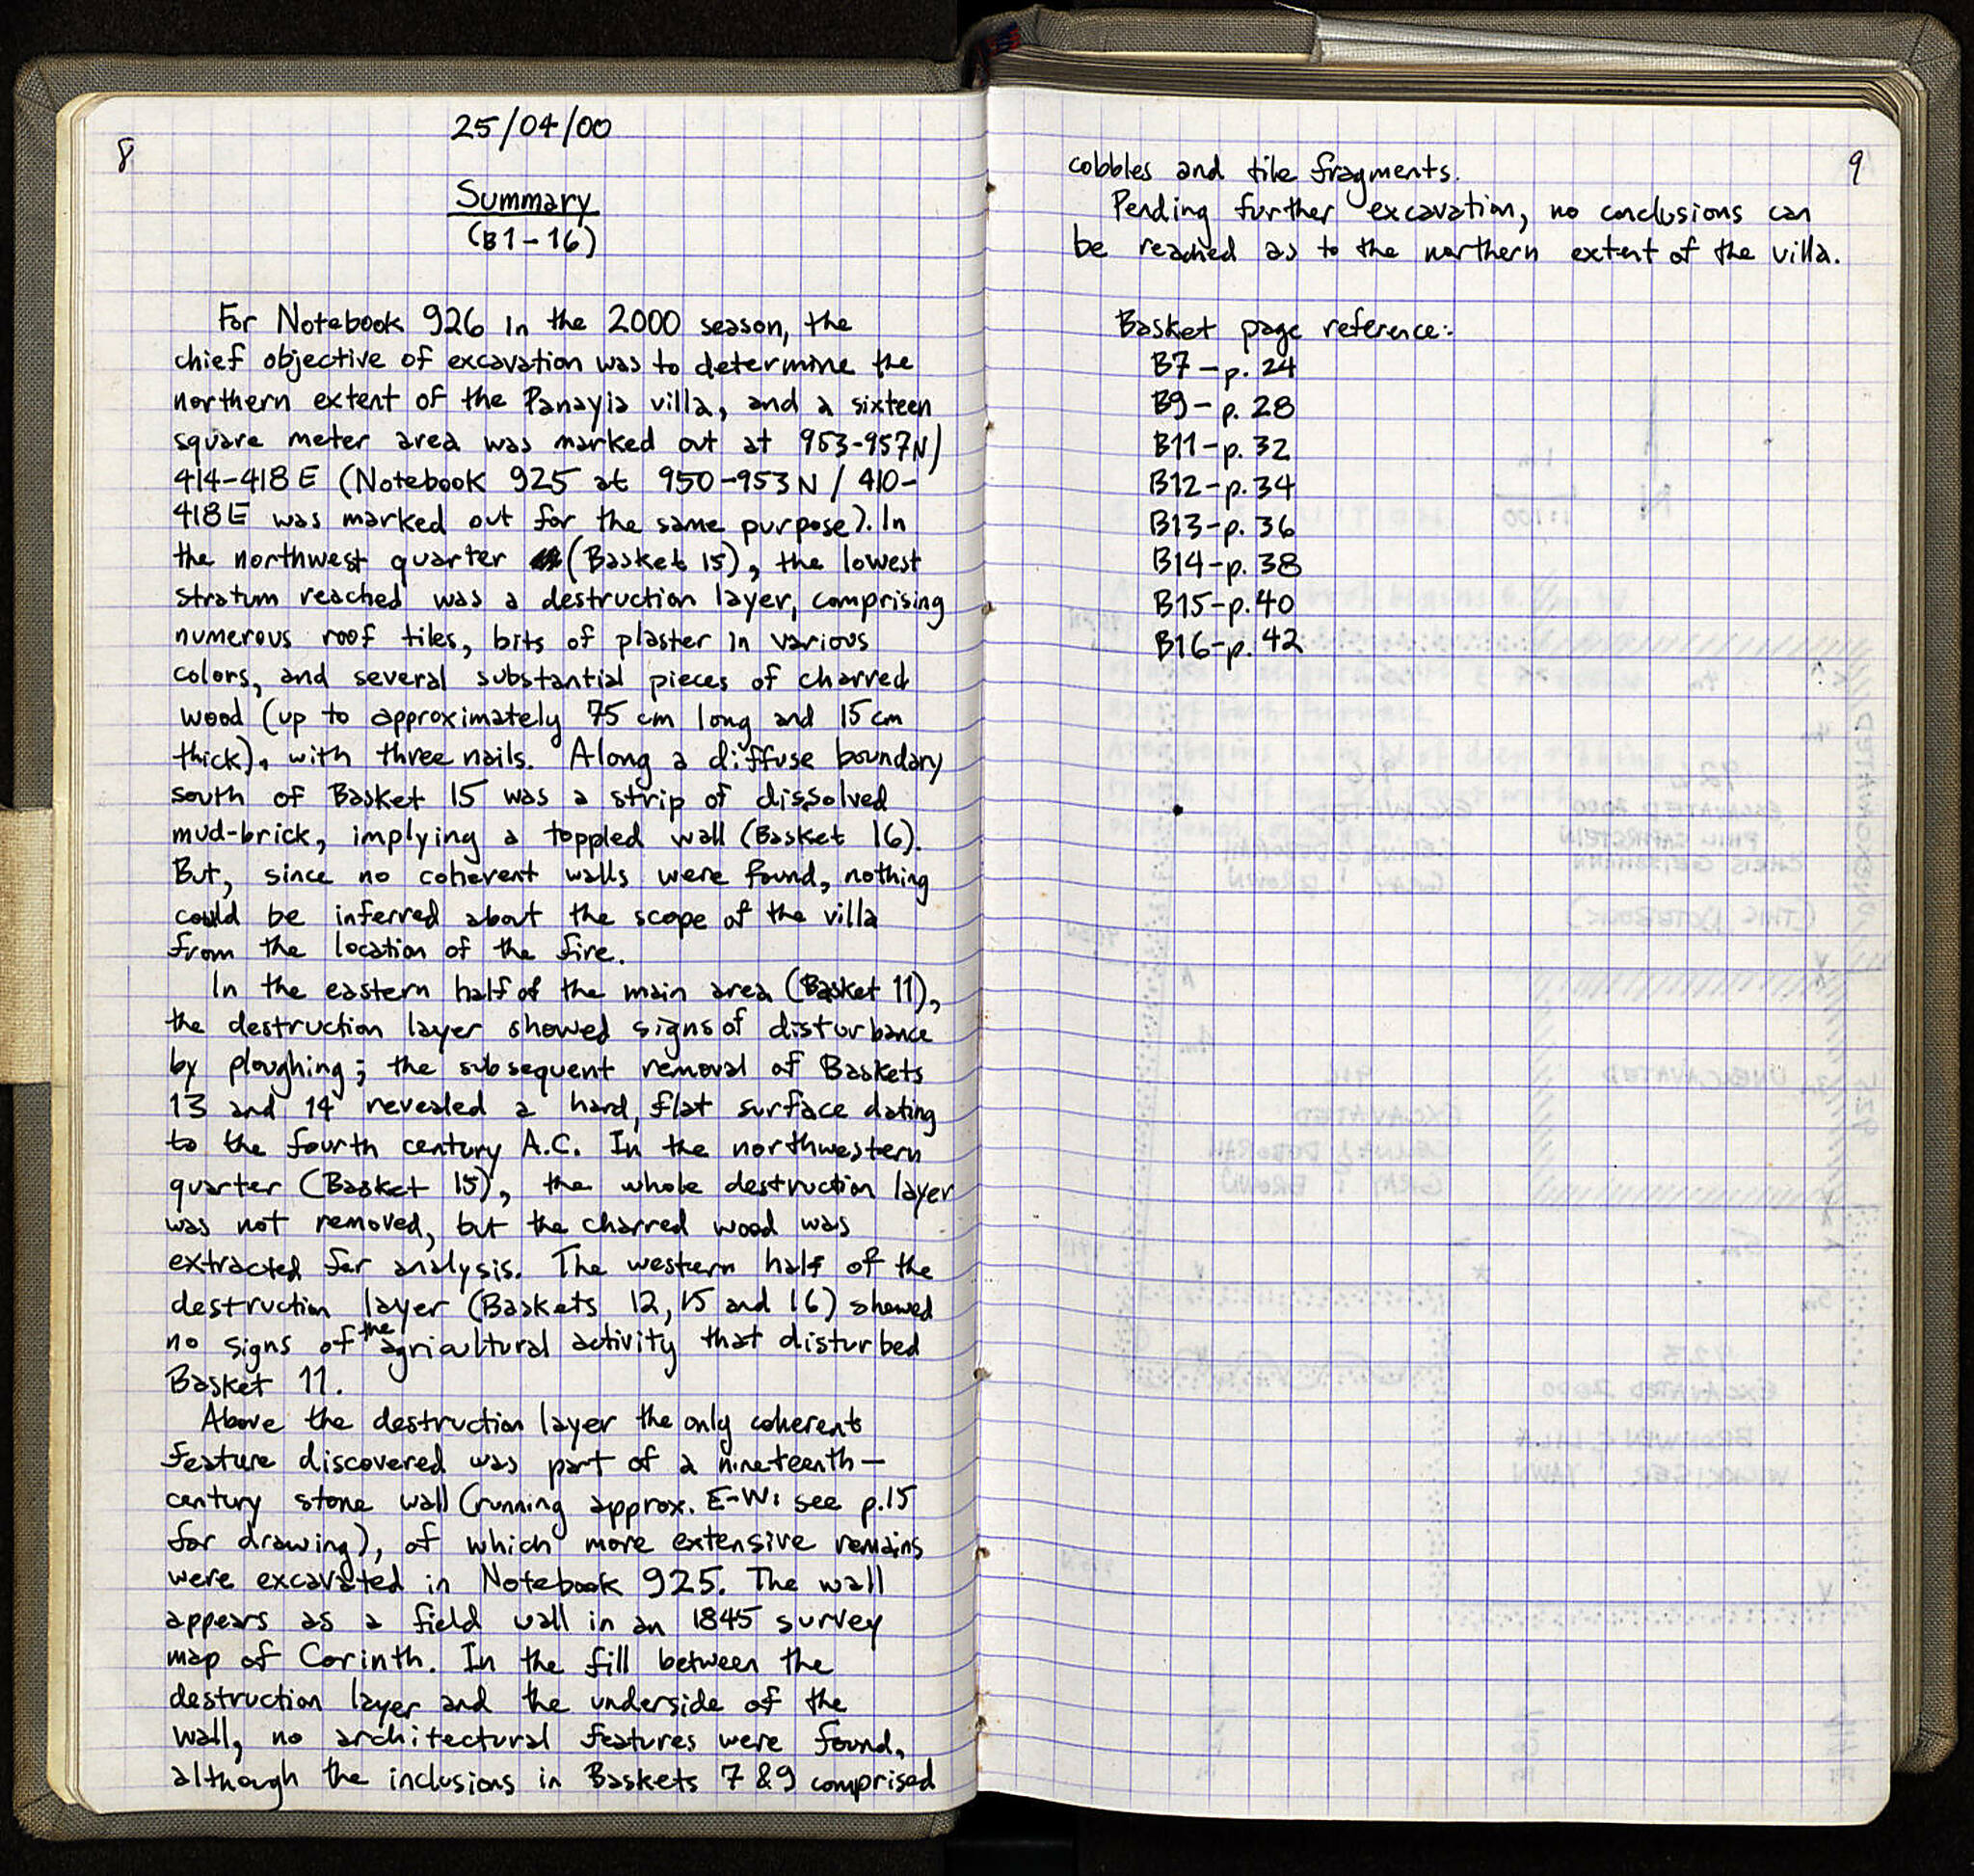 8
25/04/00
Summary
(B1-16)
For Notebook 926 in the 2000 season, the
chief objective of excavation was to determine the
northern extent of the Panayia villa, and a sixteen
square meter area was marked out at 953-957N/
414-418E (Notebook 925 at 950-953N / 410-
418E was marked out for the same purpose). In
the northwest quarter (Basket 15), the lowest
stratum reached was a destruction layer, comprising
numerous roof tiles, bits of plaster in various
colors, and several substantial pieces of charred
wood (up to approximately 75 cm long and 15 cm
thick), with three nails. Along a diffuse boundary
south of Basket 15 was a strip of dissolved
mud-brick, implying a toppled wall (Basket 16).
But, since no coherent walls were found, nothing
could be inferred about the scope of the villa
from the location of the fire.
In the eastern half of the main area (Basket 11),
the destruction layer showed signs of disturbance
by ploughing; the subsequent removal of Baskets
13 and 14 revealed a hard, flat surface dating
to the fourth century A.C. In the northwestern
quarter (Basket 15), the whole destruction layer
was not removed, but the charred wood was
extracted for analysis. The western half of the
destruction layer (Baskets 12, 15 and 16) showed
no signs of the agricultural activity that disturbed
Basket 11.
Above the destruction layer the only coherent
feature discovered was part of a nineteenth-
century stone wall (running approx. E-W: see p.15
for drawing), of which more extensive remains
were excavated in Notebook 925. The wall
appears as a field wall in an 1845 survey
map of Corinth. In the fill between the
destruction layer and the underside of the
wall, no architectural features were found,
although the inclusions in Baskets 7 & 9 comprised
9
cobbles and tile fragments.
Pending further excavation, no conclusions can
be reached as to the northern extent of the villa.
Basket page reference:
B7-p. 24
B9-p. 28
B11-p. 32
B12-p. 34
B13-p. 36
B14-p. 38
B15-p. 40
B16-p. 42